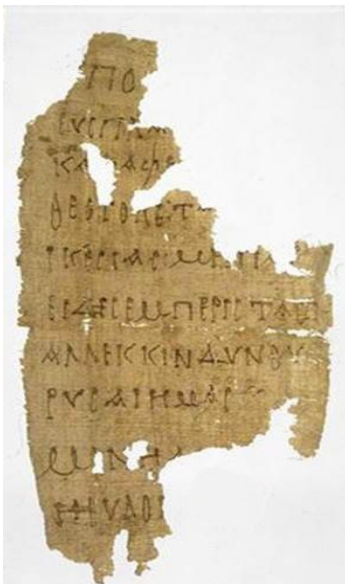 ΠΟ
ΕΥCΠΛ
ΚΑΤΑΦΕ
ΘΕΟΤΟΚΕΤ
ΙΚΕCΙΑCΜΗΠΑ
ΕΙΔΗCΕΜΠΕΡΙCΤΑC
ΑΛΛΕΚΚΙΝΔΥΝΟΥ
ΡΥCΑΙΗΜΑC
ΜΟΝΗ
ΕΥΛΟΓ